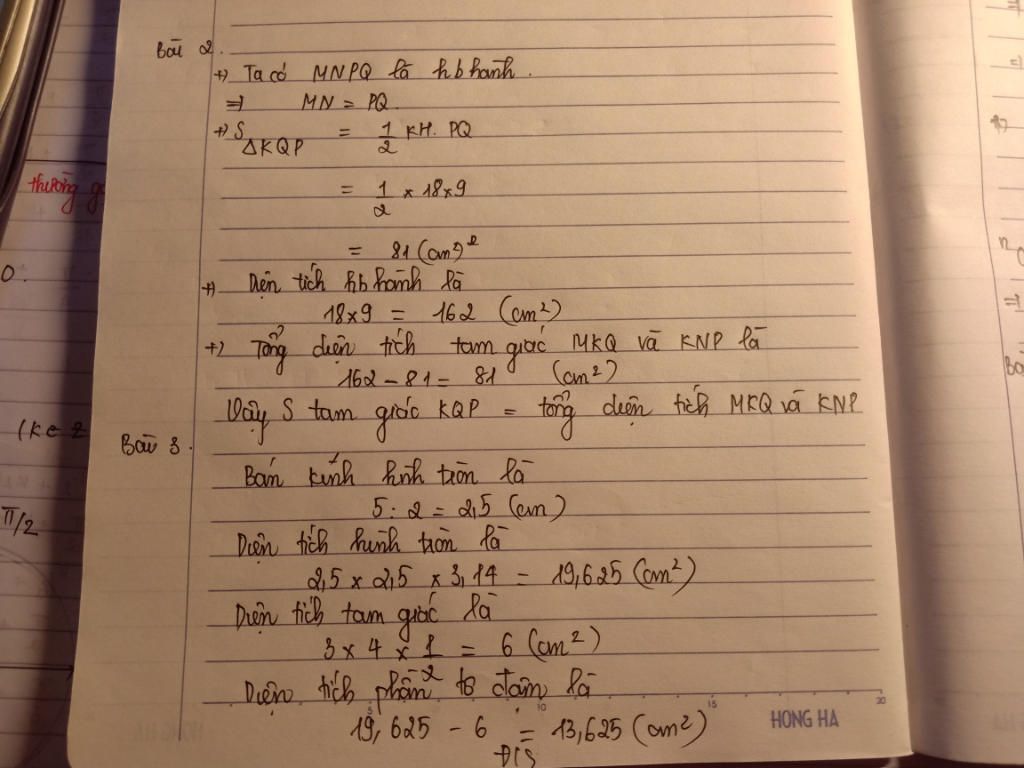 Bài 2.
+) Ta có MNPQ là hbhành.
=) MN = PQ.
+) S ΔKQP = 1/2 KH. PQ
= 1/2 x 18 x 9
= 81 (cm²)²
+) Diện tích hbhành là
18x9 = 162 (cm²)
+) Tổng diện tích tam giác MKQ và KNP là
162 - 81 = 81 (cm²)
Vậy S tam giác KQP = tổng diện tích MKQ và KNP
Bài 3.
Bán kính hình tròn là
5 : 2 = 2,5 (cm)
Diện tích hình tròn là
2,5 x 2,5 x 3,14 = 19,625 (cm²)
Diện tích tam giác là
3 x 4 x 1/2 = 6 (cm²)
Diện tích phần tô đậm là
5 10 15 20
19,625 - 6 = 13,625 (cm²)
HONG HA
Đ/S
thường
0.
(k e Z
π/2
HONG HA